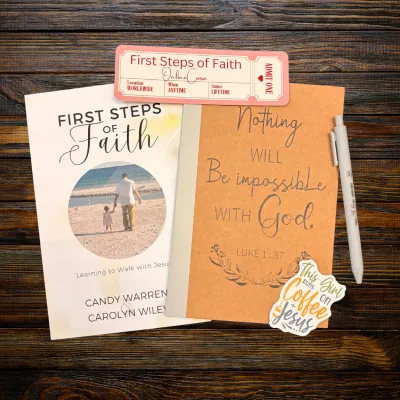 First Steps of Faith
Online Course
Location
WORLDWIDE
When
ANYTIME
Status
LIFETIME
ADMIT ONE
FIRST STEPS
OF
Faith
Learning to Walk with Jesus
CANDY WARREN
&
CAROLYN WILEY
Nothing
WILL
Be impossible
WITH God.
LUKE 1:37
This Girl
runs on
Coffee
& Jesus